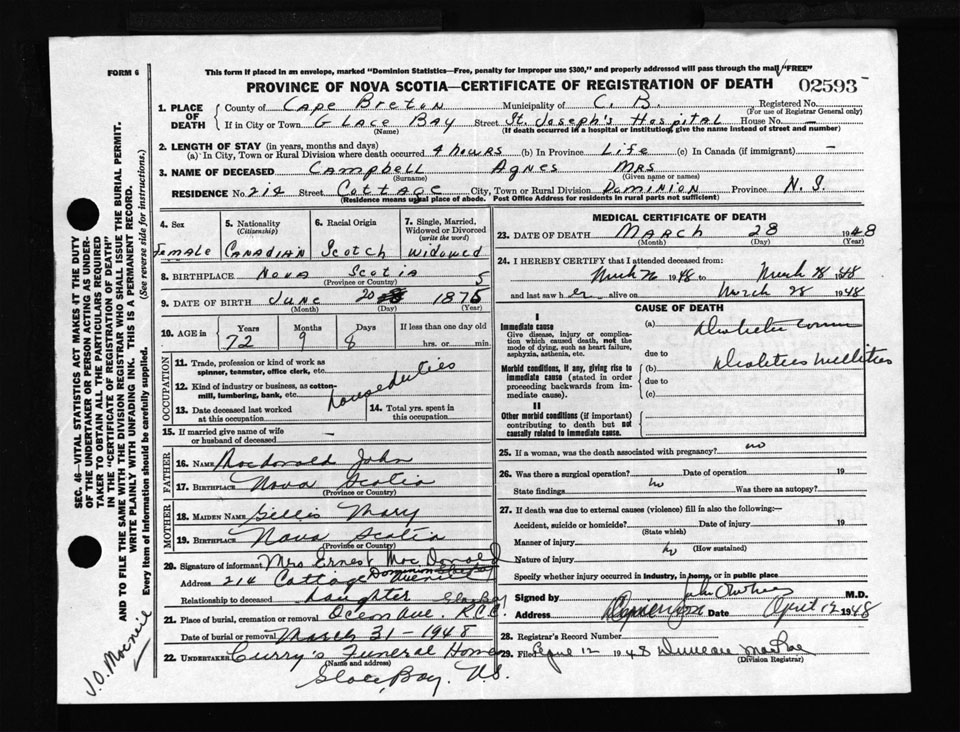 FORM 6
This form if placed in an envelope, marked "Dominion Statistics—Free, penalty for improper use $300," and properly addressed will pass through the mail "FREE"
PROVINCE OF NOVA SCOTIA—CERTIFICATE OF REGISTRATION OF DEATH 02593
SEC. 46—VITAL STATISTICS ACT MAKES IT THE DUTY
OF THE UNDERTAKER OR PERSON ACTING AS UNDER-
TAKER TO OBTAIN ALL THE PARTICULARS REQUIRED
IN THE "CERTIFICATE OF REGISTRATION OF DEATH"
AND TO FILE THE SAME WITH THE DIVISION REGISTRAR WHO SHALL ISSUE THE BURIAL PERMIT.
WRITE PLAINLY WITH UNFADING INK. THIS IS A PERMANENT RECORD.
Every item of information should be carefully supplied. (See reverse side for instructions.)
J.O. Mcneil
1. PLACE OF DEATH County of Cape Breton Municipality of C. B. Registered No.
(For use of Registrar General only)
If in City or Town GLACE BAY Street St. Joseph's Hospital House No. –
(Name) (If death occurred in a hospital or institution, give the name instead of street and number)
2. LENGTH OF STAY (in years, months and days)
(a) In City, Town or Rural Division where death occurred 4 hours (b) In Province Life (c) In Canada (if immigrant) –
3. NAME OF DECEASED Campbell Agnes Mrs
(Surname) (Given name or names)
RESIDENCE No. 214 Street Cottage City, Town or Rural Division Dominion Province N.S.
(Residence means usual place of abode. Post Office Address for residents in rural parts not sufficient)
4. Sex 5. Nationality (Citizenship) 6. Racial Origin 7. Single, Married, Widowed or Divorced (write the word)
Female Canadian Scotch Widowed
8. BIRTHPLACE Nova Scotia
(Province or Country)
9. DATE OF BIRTH June 20 1875
(Month) (Day) (Year)
10. AGE in Years Months Days If less than one day old
72 9 8 hrs. or min.
OCCUPATION
11. Trade, profession or kind of work as spinner, teamster, office clerk, etc.
12. Kind of industry or business, as cotton-mill, lumbering, bank, etc.
House duties
13. Date deceased last worked at this occupation 14. Total yrs. spent in this occupation
15. If married give name of wife or husband of deceased –
FATHER
16. NAME Macdonald John
17. BIRTHPLACE Nova Scotia
(Province or Country)
MOTHER
18. MAIDEN NAME Gillis Mary
19. BIRTHPLACE Nova Scotia
(Province or Country)
20. Signature of informant Mrs Ernest MacDonald
Address 214 Cottage Avenue Dominion
Relationship to deceased Daughter
21. Place of burial, cremation or removal Ocean Ave. R.C.C. Glace Bay
Date of burial or removal March 31–1948
22. UNDERTAKER Curry's Funeral Home
(Name and address)
Glace Bay, N.S.
MEDICAL CERTIFICATE OF DEATH
23. DATE OF DEATH MARCH 28 1948
(Month) (Day) (Year)
24. I HEREBY CERTIFY that I attended deceased from
March 26 1948 to March 28 1948
and last saw her alive on March 28 1948
CAUSE OF DEATH
I
Immediate cause
Give disease, injury or complication which caused death, not the mode of dying, such as heart failure, asphyxia, asthenia, etc.
(a) Diabetic Coma
due to
Morbid conditions, if any, giving rise to immediate cause (stated in order proceeding backwards from immediate cause).
(b) Diabetes Mellitus
due to
(c)
II
Other morbid conditions (if important) contributing to death but not causally related to immediate cause.
25. If a woman, was the death associated with pregnancy? no
26. Was there a surgical operation? no Date of operation 19
State findings Was there an autopsy?
27. If death was due to external causes (violence) fill in also the following:—
Accident, suicide or homicide? Date of injury 19
(State which)
Manner of injury no
(How sustained)
Nature of injury
Specify whether injury occurred in industry, in home, or in public place
Signed by M.D.
Address Date April 12 1948
28. Registrar's Record Number
29. Filed April 12 1948 Duncan MacRae
(Division Registrar)